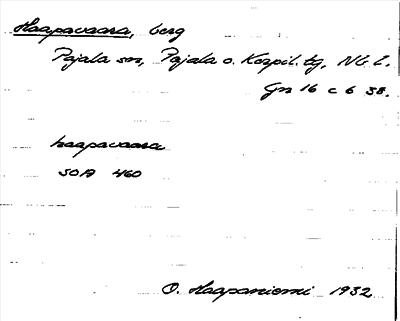 Haapavaara, berg
Pajala sn, Pajala o. Korpil. tg, Nb. l.
Gn 16 c 6 38.
haapavaara
SOA 460
O. Haapaniemi 1932